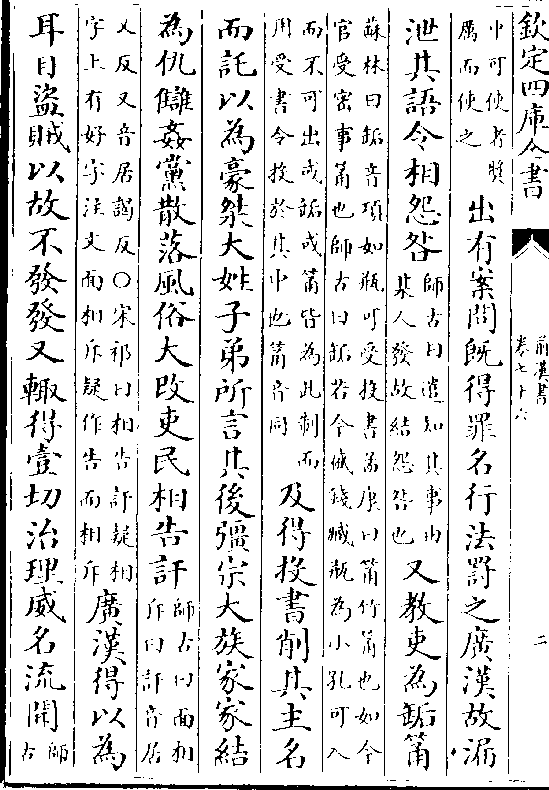 欽定四庫全書
前漢書
卷七十六
二
中可使者奬
厲而使之
出有案問既得罪名行法罰之廣漢故漏
泄其語令相怨咎
師古曰遣知其事由
某人發故結怨咎也
又教吏為缿筩
蘇林曰缿音項如瓶可受投書孟康曰筩竹筩也如今
官受密事筩也師古曰缿若今盛錢臧瓶為小孔可入
而不可出或缿或筩皆為此制而
用受書令投於其中也筩音同
及得投書削其主名
而託以為豪桀大姓子弟所言其後彊宗大族家家結
為仇讎姦黨散落風俗大改吏民相告訐
師古曰面相
斥曰訐音居
乂反又音居謁反○宋祁曰相告訐疑相
字上有好字注文面相斥疑作告而相斥
廣漢得以為
耳目盜賊以故不發發又輒得壹切治理威名流聞
師
古